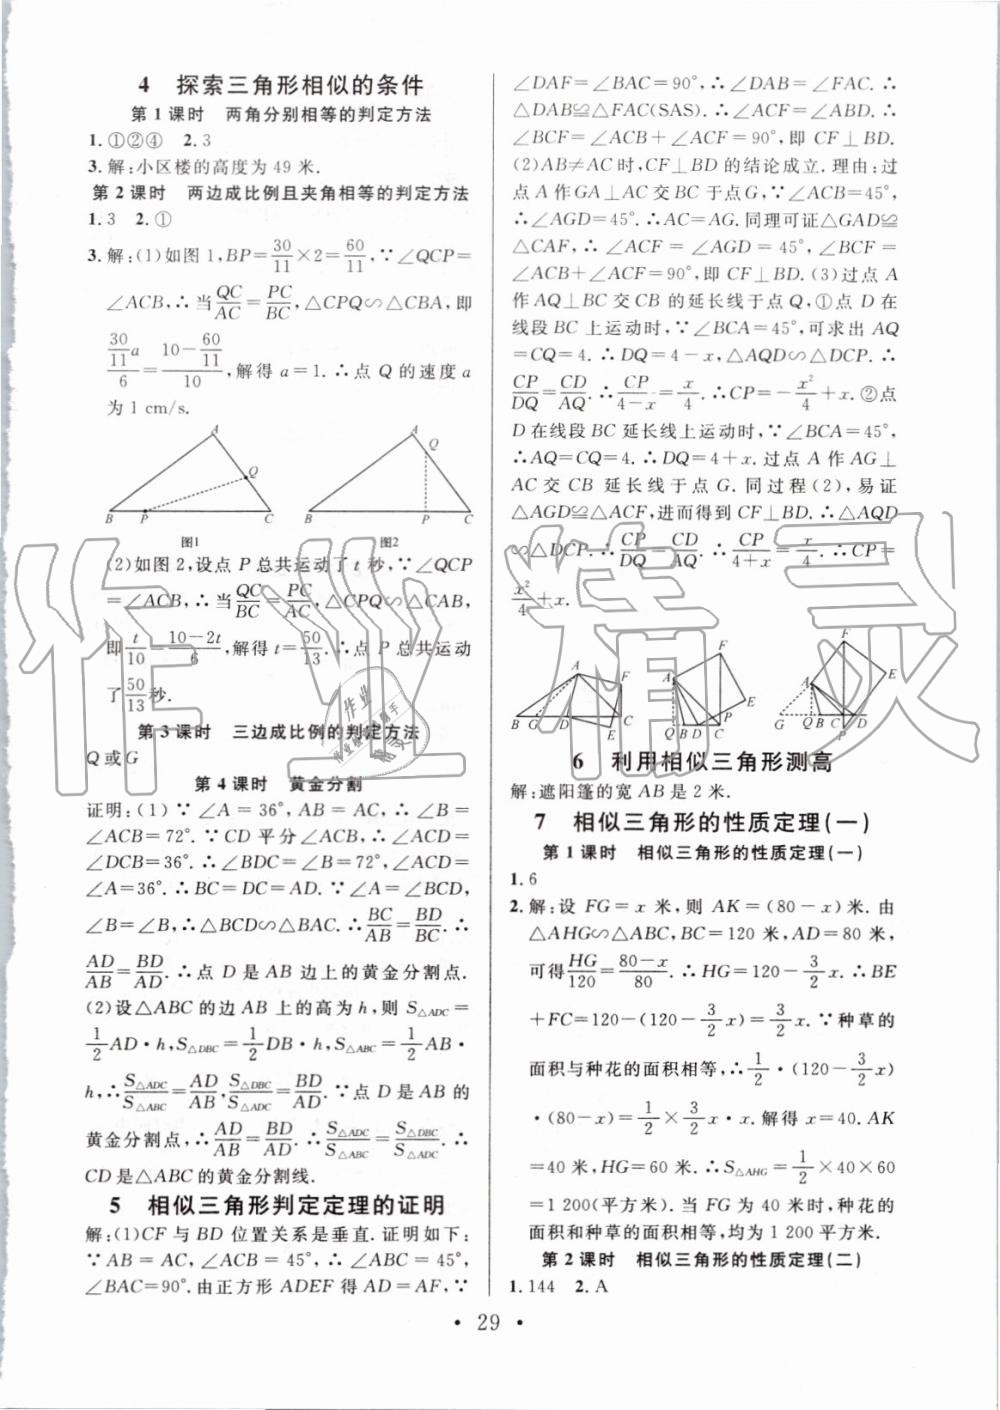 4 探索三角形相似的条件
第1课时 两角分别相等的判定方法
1.①②④ 2.3
3.解:小区楼的高度为49米.
第2课时 两边成比例且夹角相等的判定方法
1.3 2.①
3.解:(1)如图1,BP=30/11×2=60/11,∵∠QCP=
∠ACB,∴当QC/AC=PC/BC,△CPQ∽△CBA,即
(30/11 a)/6=(10-60/11)/10,解得a=1.∴点Q的速度a
为1 cm/s.
A
Q
B P C
图1
A
B P C
图2
(2)如图2,设点P总共运动了t秒,∵∠QCP
=∠ACB,∴当QC/BC=PC/AC,△CPQ∽△CAB,
即t/10=(10-2t)/6,解得t=50/13.∴点P总共运动
了50/13秒.
第3课时 三边成比例的判定方法
Q或G
第4课时 黄金分割
证明:(1)∵∠A=36°,AB=AC,∴∠B=
∠ACB=72°.∵CD平分∠ACB,∴∠ACD=
∠DCB=36°.∴∠BDC=∠B=72°,∠ACD=
∠A=36°.∴BC=DC=AD.∵∠A=∠BCD,
∠B=∠B,∴△BCD∽△BAC.∴BC/AB=BD/BC.∴
AD/AB=BD/AD.∴点D是AB边上的黄金分割点.
(2)设△ABC的边AB上的高为h,则S△ADC=
1/2AD·h,S△DBC=1/2DB·h,S△ABC=1/2AB·
h,∴S△ADC/S△ABC=AD/AB,S△DBC/S△ADC=BD/AD.∵点D是AB的
黄金分割点,∴AD/AB=BD/AD.∴S△ADC/S△ABC=S△DBC/S△ADC.∴
CD是△ABC的黄金分割线.
5 相似三角形判定定理的证明
解:(1)CF与BD位置关系是垂直.证明如下:
∵AB=AC,∠ACB=45°,∴∠ABC=45°.
∠BAC=90°.由正方形ADEF得AD=AF,∵
∠DAF=∠BAC=90°,∴∠DAB=∠FAC.∴
△DAB≌△FAC(SAS).∴∠ACF=∠ABD.∴
∠BCF=∠ACB+∠ACF=90°,即CF⊥BD.
(2)AB≠AC时,CF⊥BD的结论成立.理由:过
点A作GA⊥AC交BC于点G,∵∠ACB=45°,
∴∠AGD=45°.∴AC=AG.同理可证△GAD≌
△CAF,∴∠ACF=∠AGD=45°,∠BCF=
∠ACB+∠ACF=90°,即CF⊥BD.(3)过点A
作AQ⊥BC交CB的延长线于点Q,①点D在
线段BC上运动时,∵∠BCA=45°,可求出AQ
=CQ=4.∴DQ=4-x,△AQD∽△DCP.∴
CP/DQ=CD/AQ.∴CP/(4-x)=x/4.∴CP=-x²/4+x.②点
D在线段BC延长线上运动时,∵∠BCA=45°,
∴AQ=CQ=4.∴DQ=4+x.过点A作AG⊥
AC交CB延长线于点G.同过程(2),易证
△AGD≌△ACF,进而得到CF⊥BD.∴△AQD
∽△DCP.∴CP/DQ=CD/AQ.∴CP/(4+x)=x/4.∴CP=
x²/4+x.
A F
B G D C
E
F
A
E
B D C P
F
A
E
G Q B C D
P
6 利用相似三角形测高
解:遮阳篷的宽AB是2米.
7 相似三角形的性质定理(一)
第1课时 相似三角形的性质定理(一)
1.6
2.解:设FG=x米,则AK=(80-x)米.由
△AHG∽△ABC,BC=120米,AD=80米,
可得HG/120=(80-x)/80.∴HG=120-3/2x.∴BE
+FC=120-(120-3/2x)=3/2x.∵种草的
面积与种花的面积相等,∴1/2·(120-3/2x)
·(80-x)=1/2×3/2x·x.解得x=40.AK
=40米,HG=60米.∴S△AHG=1/2×40×60
=1 200(平方米).当FG为40米时,种花的
面积和种草的面积相等,均为1 200平方米.
第2课时 相似三角形的性质定理(二)
1.144 2.A
·29·
作业精灵